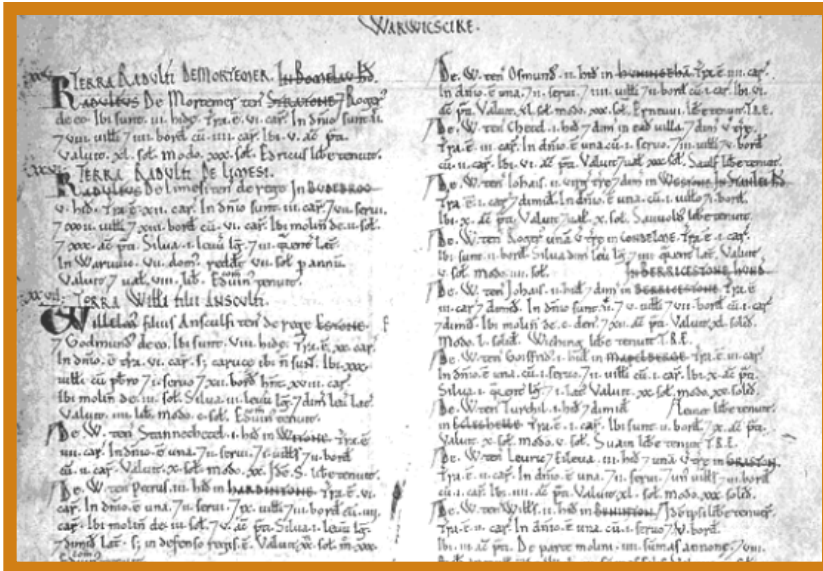 WARWICSCIRE.
TERRA RADULFI DE MORTEMER. In Bomelau Hd.
RADULFUS De Mortemer ten STRATONE 7 Rogerˀ
de eo. Ibi sunt .iii. hidę. Tra .ē. vi. car. In dnio sunt .ii.
7 viii. uilli 7 iii. bord cū .iiii. car. Ibi .v. ac pti.
Valuit .xl. sol. Modo .xxx. sol. Edricus libe tenuit.
TERRA RADULFI DE LIMESI.
RADULFUS De limesi ten de rege In BUDEBROC
v. hid. Tra ē xii. car. In dnio sunt .iii. car 7 vii. serui.
bord cū .vi. car. Ibi molin de .ii. sol.
7 xxx. ac pti. Silua .i. leuu lg. 7 iii. quent lat.
In Waruuic .vii. dom redde vii. sol p annū.
Valuit 7 ual .viii. lib. Eduin tenuit.
TERRA WILLI FILII ANSCULFI.
Willelm filius Ansculfi ten de rege ESTONE.
7 Godmund de eo. Ibi sunt .viii. hidę. Tra .ē. xx. car.
In dnio .ē. tra .vi. car. s; carucę ibi ñ sunt. Ibi .xxx.
uilli cū pbro 7 i. seruo 7 xii. bord hnt .xviii. car.
Ibi molin de .iii. sol. Silua .iii. leuu lg. 7 dim leu lat.
Valuit .iiii. lib. Modo .c. sol. Eduin tenuit.
De .W. ten Stannechetel .i. hid in WITONE. Tra .ē.
iiii. car. In dnio .ē. una. 7 ii. serui. 7 i. uills 7 ii. bord
cū .ii. car. Valuit .x. sol. modo .xx. Ide .S. libe tenuit.
De .W. ten Petrus .iii. hid in HARDINTONE. Tra .ē. vi.
car. In dnio .ē. una. 7 ii. serui. 7 ix. uilli 7 iii. bord cū .iiii.
car. Ibi molin de .iii. sol. 7 v. ac pti. Silua .i. leuu lg.
7 dimid lat. s; in defenso regis .ē. Valuit .xx. sol. m .xxx.
De .W. ten Osmund .ii. hid in Tra ē .iiii. car.
In dnio .ē. una. 7 ii. serui. 7 iiii. uilli 7 ii. bord cū .i. car. Ibi .vi.
ac pti. Valuit .xl. sol. modo .xxx. sol. Ernuui libe tenuit. T.R.E.
De .W. ten Chetel .i. hid 7 dim in ead uilla. 7 dim v tre.
Tra .ē. iii. car. In dnio .ē. una cū .i. seruo. 7 iii. uilli 7 x. bord
cū .ii. car. Ibi .vi. ac pti. Valuit 7 ual .xxx. sol. Saulf libe tenuit.
De .W. ten Iohais .ii. virg tre 7 dim in WESTONE. In Stanlei Hd
Tra .ē. i. car 7 dimid. In dnio .ē. una. cū .i. uillo 7 i. bord.
Ibi .x. ac pti. Valuit 7 ual .x. sol. Sauuold libe tenuit.
De .W. ten Roger unā v tre in CONDELME. Tra .ē. i. car.
Ibi sunt .ii. bord. Silua dim leu lg. 7 iii. quent lat. Valuit
v. sol. modo .iii. sol. In BERRICESTONE HUND.
De .W. ten Iohais .ii. hid 7 dim in BERRICESTONE. Tra .ē
iii. car 7 dimid. In dnio .ē. ii. 7 v. uilli 7 vii. bord cū .i. car
7 dimid. Ibi molin de .c. den. 7 xii. ac pti. Valuit .xl. solid.
Modo .l. solid. Wiching libe tenuit T.R.E.
De .W. ten Goisfrid .i. hid in MAPELBERGE. Tra .ē. iii. car.
In dnio .ē. una. cū .i. seruo. 7 ii. uilli cū .i. car. Ibi .x. ac pti.
Silua .i. quent lg. 7 i. lat. Valuit .xx. sol. modo .xxx. solid.
De .W. ten Turchil .i. hid 7 dimid libe tenuit.
in Tra .ē. i. car. Ibi sunt .ii. bord. 7 x. ac pti.
Valuit .x. sol. modo .v. sol. Suain libe tenuit T.R.E.
De .W. ten Leuric 7 Eileua .iii. hid 7 unā v tre in GRASTON.
Tra .ē. ii. car. In dnio .ē. una. 7 ii. serui. 7 un uills 7 ii. bord
cū .i. car. Ibi .iiii. ac pti. Valuit .xl. sol. modo .xx. solid.
De .W. ten Wills .ii. hid in Ide ipsi libe tenuer.
Tra .ē. ii. car. In dnio .ē. una. cū .i. seruo 7 bord.
Ibi .iii. ac pti. De parte molini .iiii. sumas annonę. 7 viii.